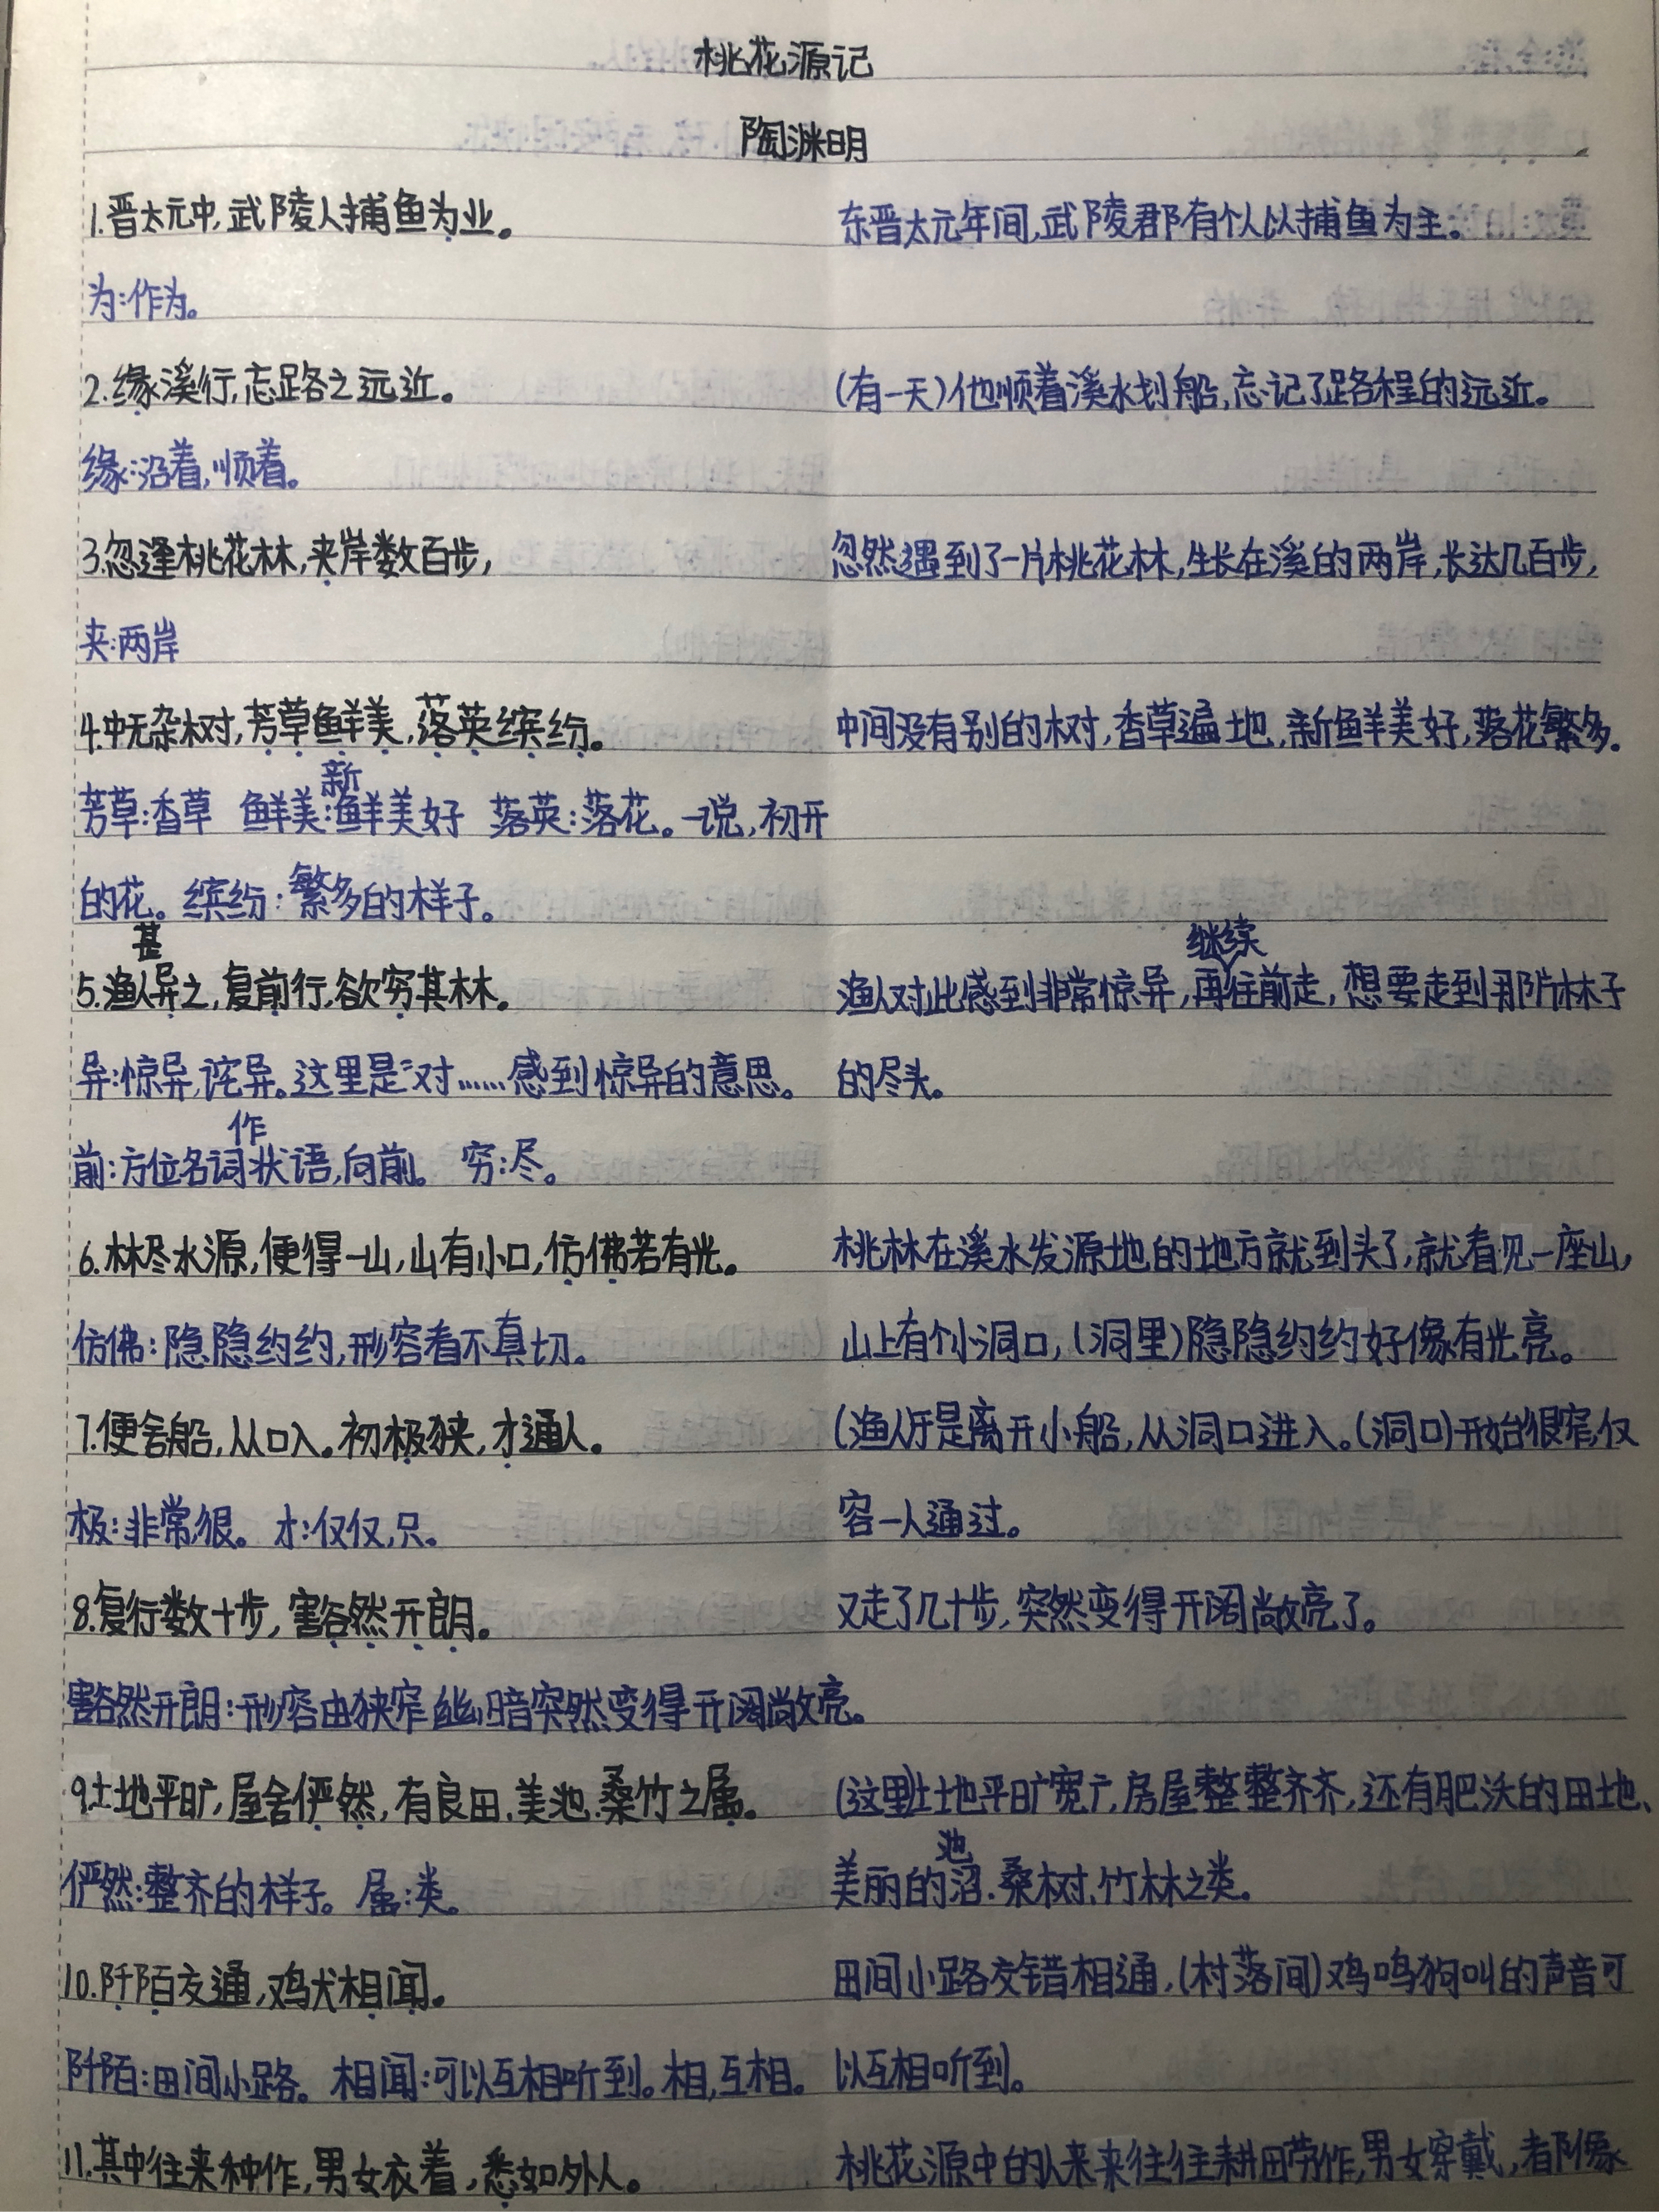 桃花源记
陶渊明
1.晋太元中,武陵人捕鱼为业。 东晋太元年间,武陵郡有个人以捕鱼为主。
为:作为。
2.缘溪行,忘路之远近。 (有一天)他顺着溪水划船,忘记了路程的远近。
缘:沿着,顺着。
3.忽逢桃花林,夹岸数百步, 忽然遇到了一片桃花林,生长在溪的两岸,长达几百步,
夹:两岸
4.中无杂树,芳草鲜美,落英缤纷。 中间没有别的树,香草遍地,新鲜美好,落花繁多.
芳草:香草 鲜美:新鲜美好 落英:落花。一说,初开
的花。缤纷:繁多的样子。
5.渔人甚异之,复前行,欲穷其林。 渔人对此感到非常惊异,再继续往前走,想要走到那片林子
异:惊异,诧异。这里是“对……感到惊异的意思。 的尽头。
前:方位名词作状语,向前。 穷:尽。
6.林尽水源,便得一山,山有小口,仿佛若有光。 桃林在溪水发源地的地方就到头了,就看见一座山,
仿佛:隐隐约约,形容看不真切。 山上有个小洞口,(洞里)隐隐约约好像有光亮。
7.便舍船,从口入。初极狭,才通人。 (渔人)于是离开小船,从洞口进入。(洞口)开始很窄,仅
极:非常,很。 才:仅仅,只。 容一人通过。
8.复行数十步,豁然开朗。 又走了几十步,突然变得开阔敞亮了。
豁然开朗:形容由狭窄幽暗突然变得开阔敞亮。
9.土地平旷,屋舍俨然,有良田.美池.桑竹之属。 (这里)土地平旷宽广,房屋整整齐齐,还有肥沃的田地、
俨然:整齐的样子。 属:类。 美丽的池沼.桑树、竹林之类。
10.阡陌交通,鸡犬相闻。 田间小路交错相通,(村落间)鸡鸣狗叫的声音可
阡陌:田间小路。 相闻:可以互相听到。相,互相。 以互相听到。
11.其中往来种作,男女衣着,悉如外人。 桃花源中的人来来往往耕田劳作,男女穿戴,都像